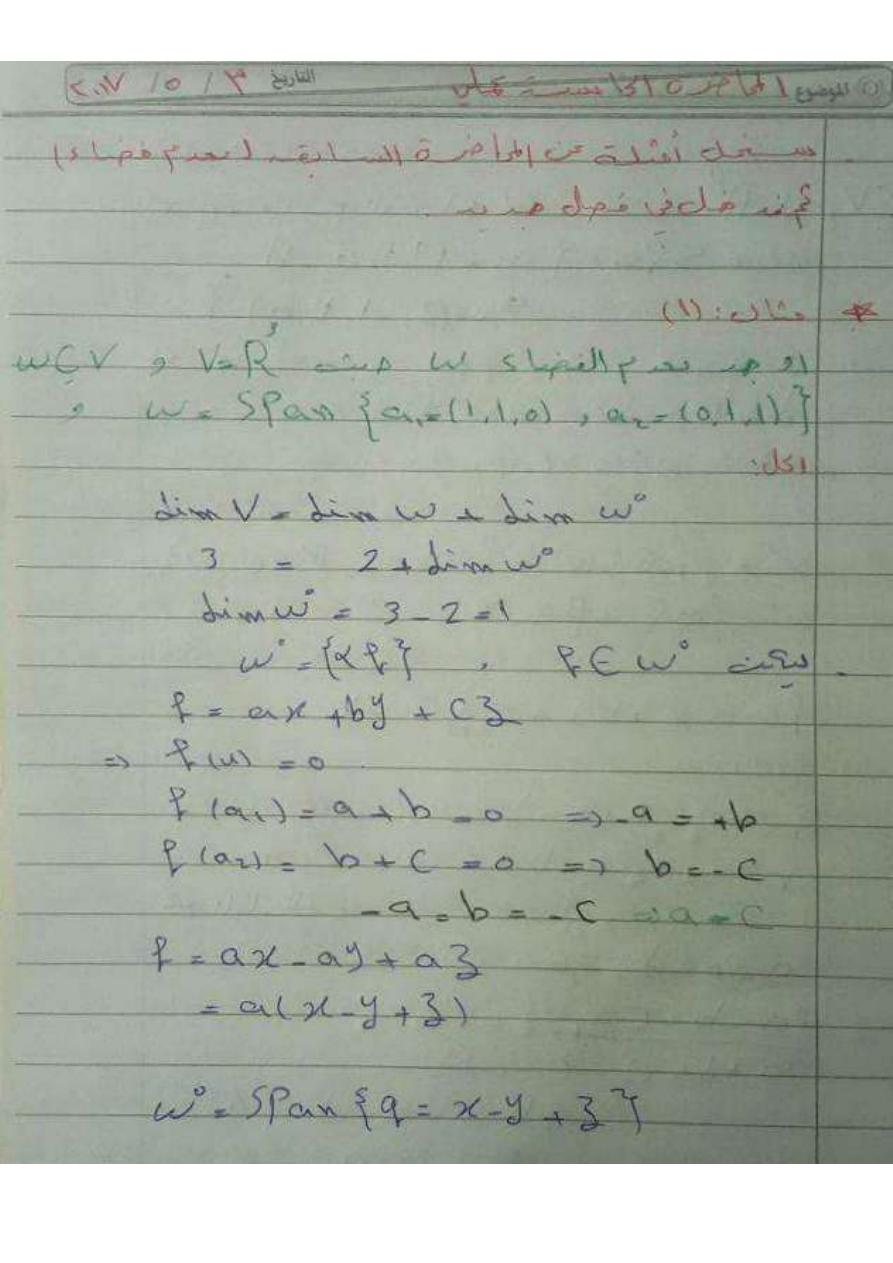 الموضوع المحاضرة الخامسة عملي التاريخ ٣ / ٥ / ٢٠١٧
سنحل أمثلة عن المحاضرة السابقة (معدم فضاء)
ثم ندخل في فصل جديد
* مثال: (١)
اوجد معدم الفضاء W حيث V=R³ و W⊆V
و W = Span {a₁=(1,1,0) , a₂=(0,1,1)}
الحل:
dim V = dim W + dim W°
3 = 2 + dim W°
dim W° = 3 - 2 = 1
W° = {αf} , f ∈ W° بحيث
f = ax + by + cz
⇒ f(u) = 0
f(a₁) = a + b = 0 ⇒ -a = +b
f(a₂) = b + c = 0 ⇒ b = -c
-a = b = -c ⇒ a = c
f = ax - ay + az
= a(x - y + z)
W° = Span {q = x - y + z}